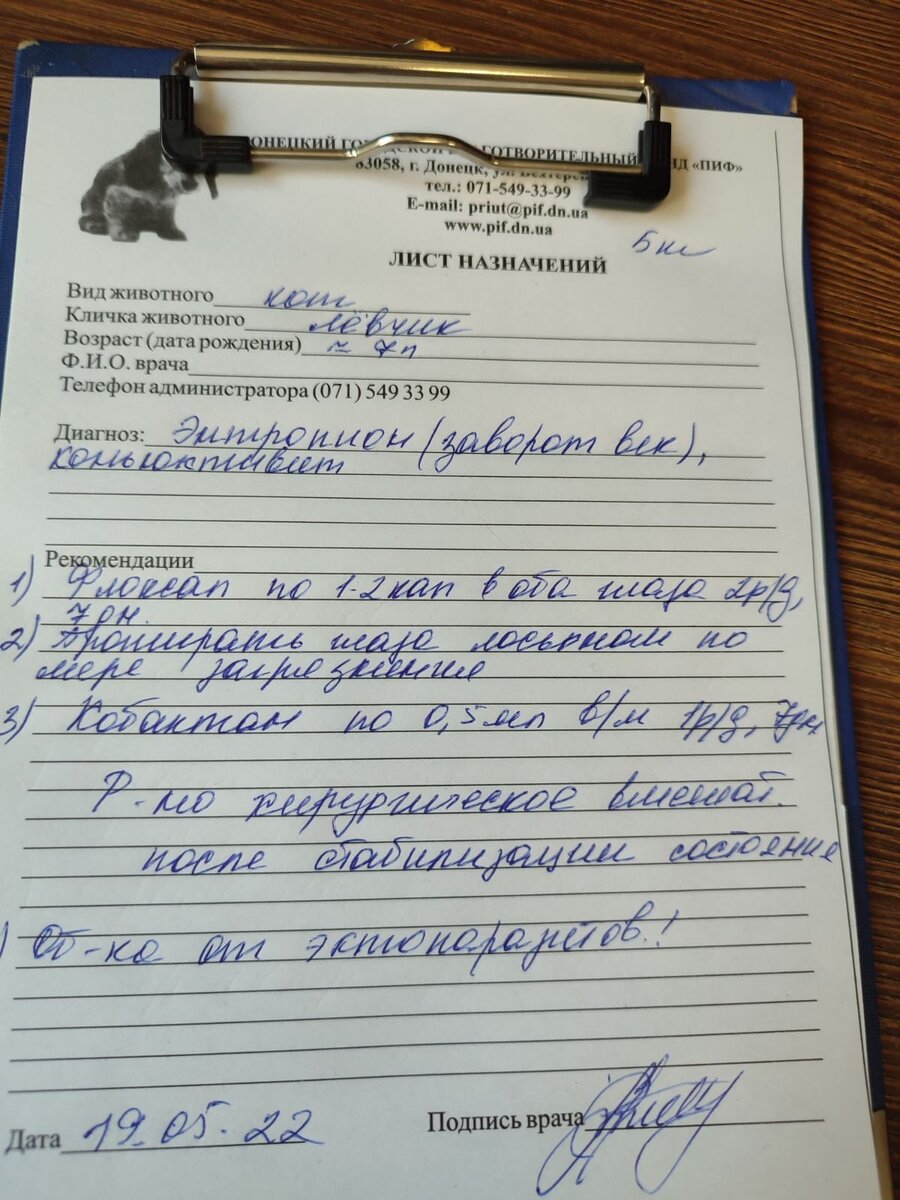 ОНЕЦКИЙ ГО ГОТВОРИТЕЛЬНЫЙ НД «ПИФ»
83058, г. Донецк, ул.
тел.: 071-549-33-99
E-mail: priut@pif.dn.ua
www.pif.dn.ua
5 кг
ЛИСТ НАЗНАЧЕНИЙ
Вид животного кот
Кличка животного Лёвчик
Возраст (дата рождения) ~ 7л
Ф.И.О. врача
Телефон администратора (071) 549 33 99
Диагноз: Энтропион (заворот век),
коньюктивит
Рекомендации
1) Флоксал по 1-2 кап в оба глаза 2р/д,
7 дн.
2) Протирать глаза лосьоном по
мере загрязнения
3) Кобактан по 0,5 мл в/м 1р/д, 7дн
Р-но хирургическое вмешат.
после стабилизации состояния
) Об-ка от эктопаразитов!
Дата 19.05.22
Подпись врача